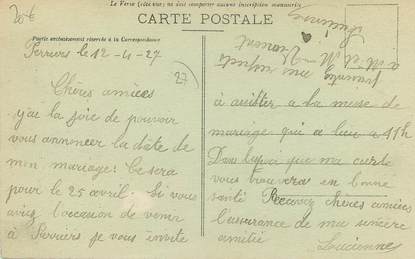 Le Verso (côté vue) ne doit comporter aucune inscription manuscrite
CARTE POSTALE
Partie exclusivement réservée à la Correspondance
20€
27
Perriers le 12-4-27
Chères amiées
j'ai la joie de pouvoir
vous annoncer la date de
mon mariage: Ce sera
pour le 25 avril. Si vous
aviez l'occasion de venir
à Perriers je vous invite
à assister a la messe de
mariage qui a lieu a 11h
Dans l'espoir que ma carte
vous trouvera en bonne
santé Recevez chères amiées
l'assurance de ma sincère
amitié
Lucienne